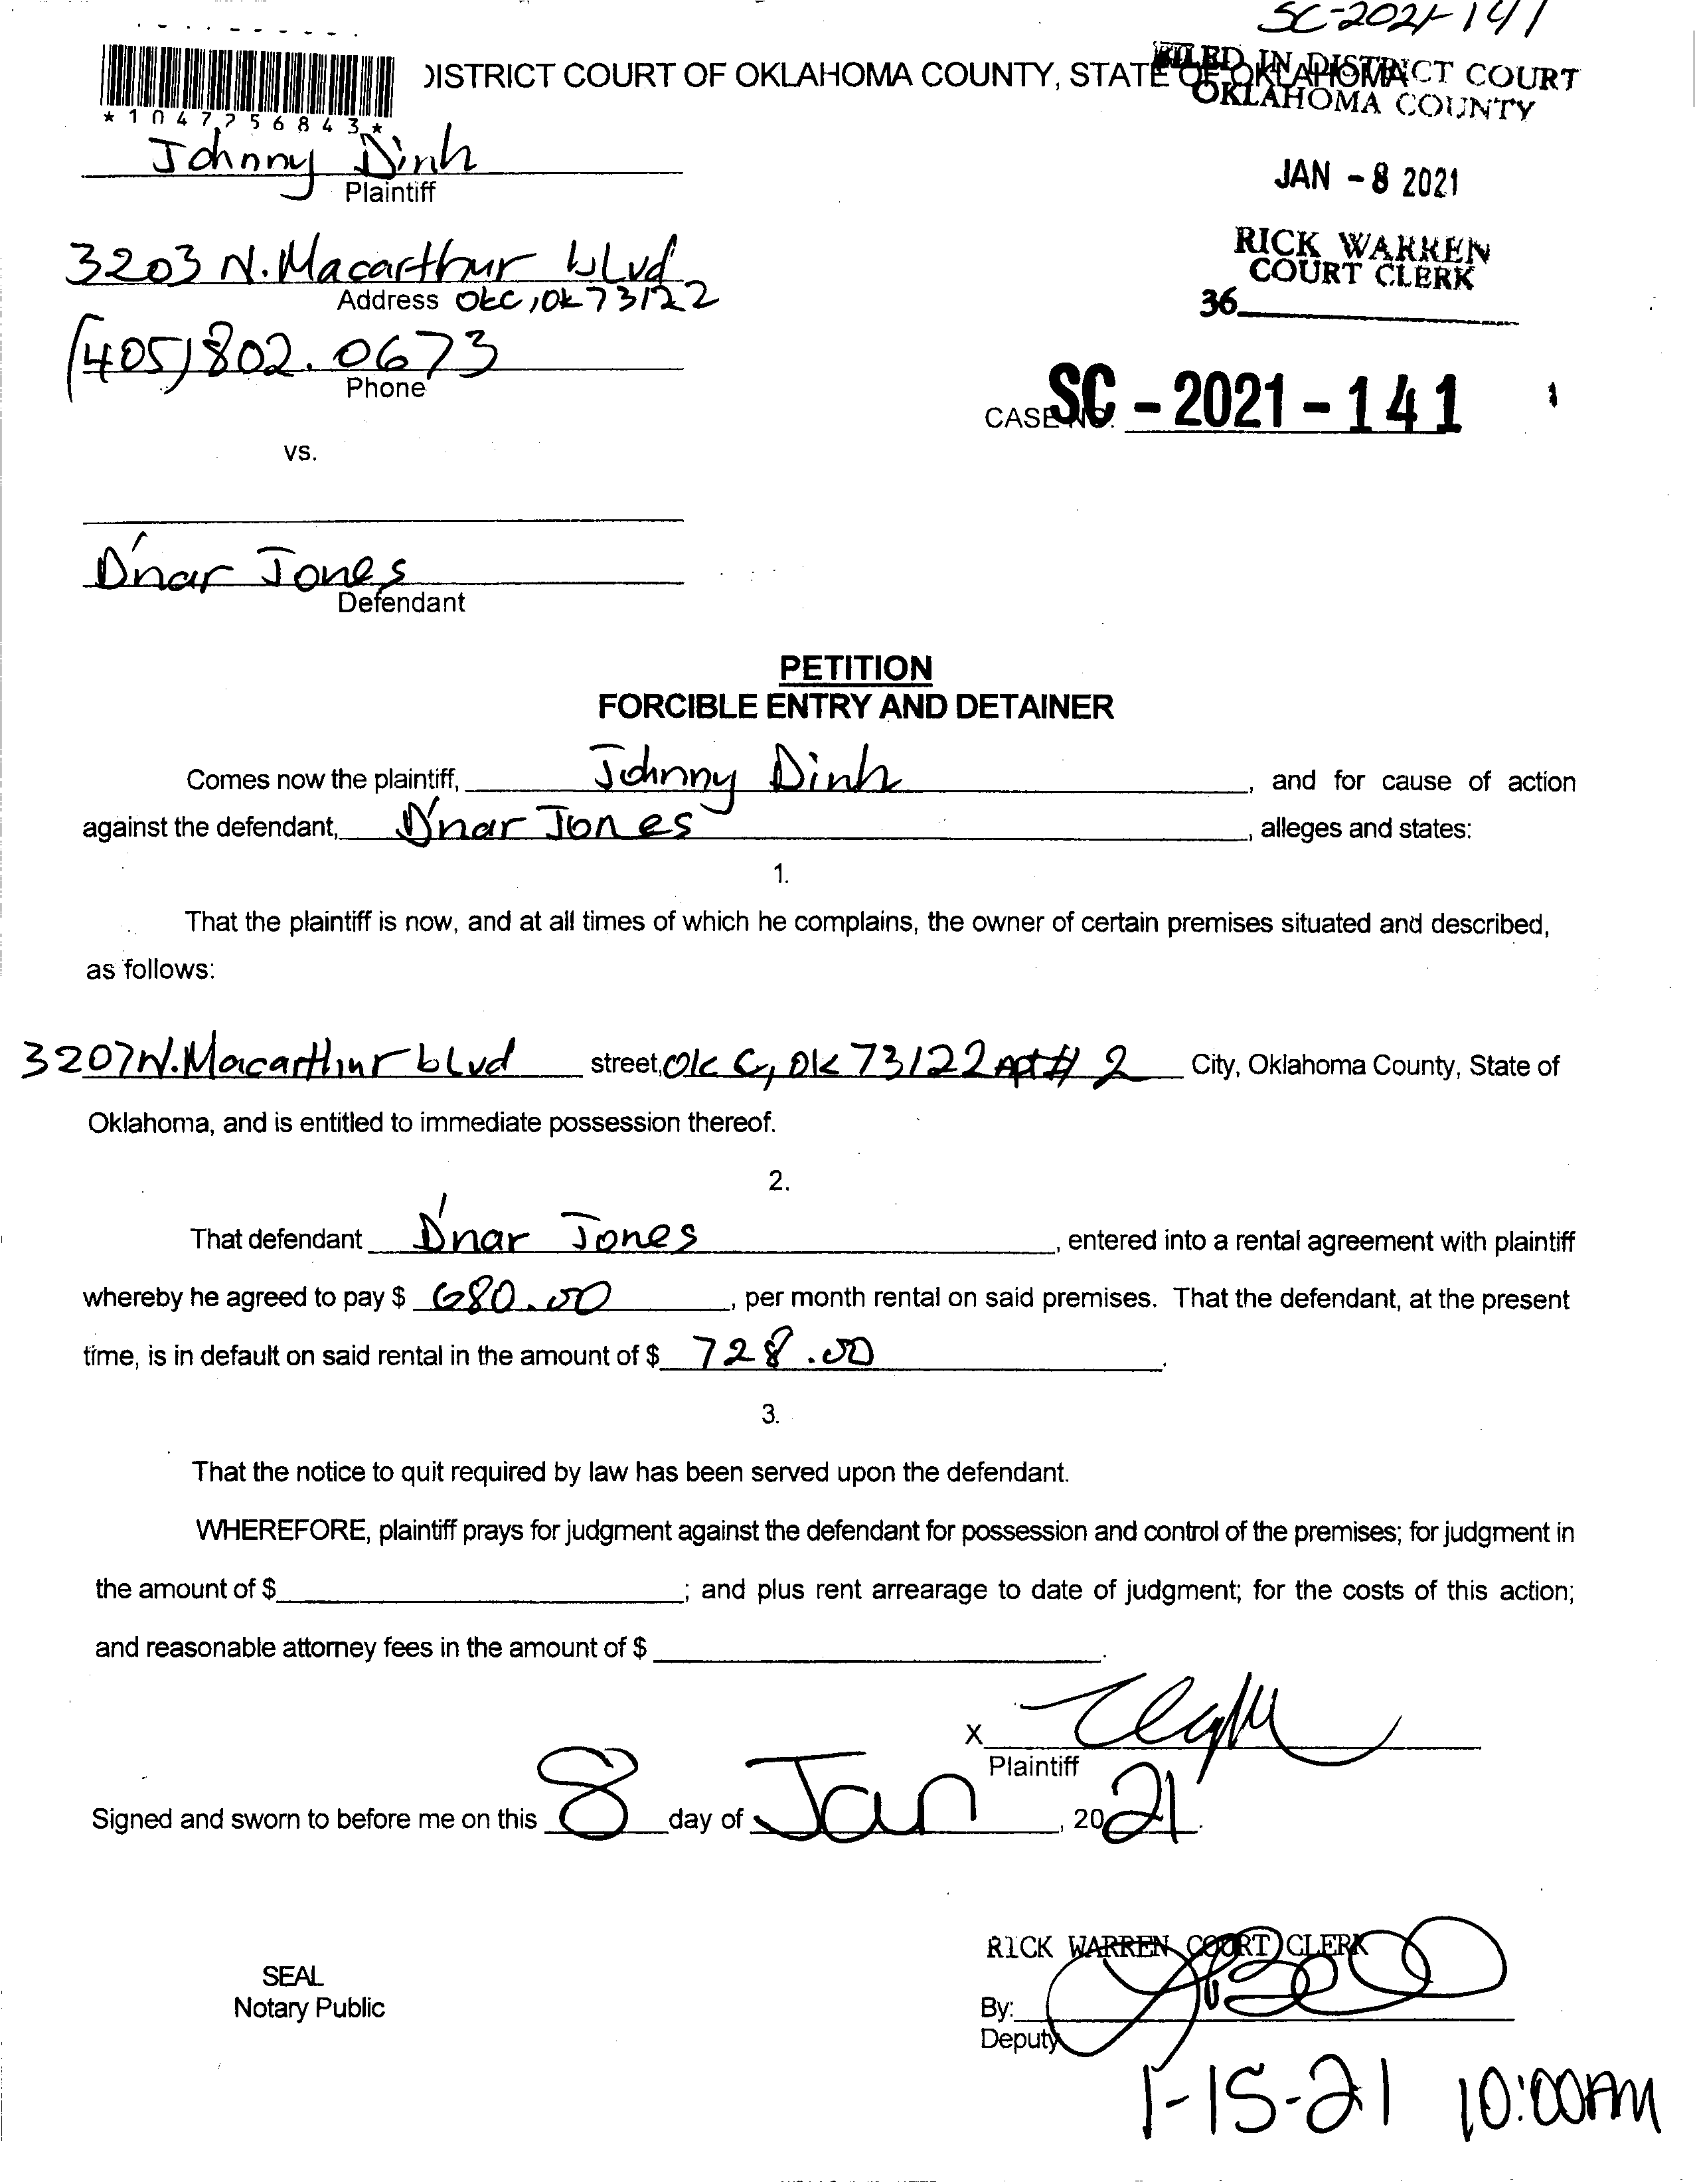 SC-2021-141
DISTRICT COURT OF OKLAHOMA COUNTY, STATE OF OKLAHOMA
FILED IN DISTRICT COURT
OKLAHOMA COUNTY
*1047256843*
Johnny Dinh
Plaintiff
JAN - 8 2021
3203 N. Macarthur blvd
Address OKC, OK 73122
RICK WARREN
COURT CLERK
36
(405) 802.0673
Phone
CASE NO. SC - 2021 - 141
vs.
D'nar Jones
Defendant
PETITION
FORCIBLE ENTRY AND DETAINER
Comes now the plaintiff, Johnny Dinh, and for cause of action
against the defendant, D'nar Jones, alleges and states:
1.
That the plaintiff is now, and at all times of which he complains, the owner of certain premises situated and described,
as follows:
3207 N. Macarthur blvd street, OK C, OK 73122 Apt# 2 City, Oklahoma County, State of
Oklahoma, and is entitled to immediate possession thereof.
2.
That defendant D'nar Jones, entered into a rental agreement with plaintiff
whereby he agreed to pay $ 680.00, per month rental on said premises. That the defendant, at the present
time, is in default on said rental in the amount of $ 728.00.
3.
That the notice to quit required by law has been served upon the defendant.
WHEREFORE, plaintiff prays for judgment against the defendant for possession and control of the premises; for judgment in
the amount of $ ; and plus rent arrearage to date of judgment; for the costs of this action;
and reasonable attorney fees in the amount of $ .
X
Plaintiff
Signed and sworn to before me on this 8 day of Jan, 2021.
RICK WARREN COURT CLERK
SEAL
Notary Public
By:
Deputy
1-15-21 10:00AM